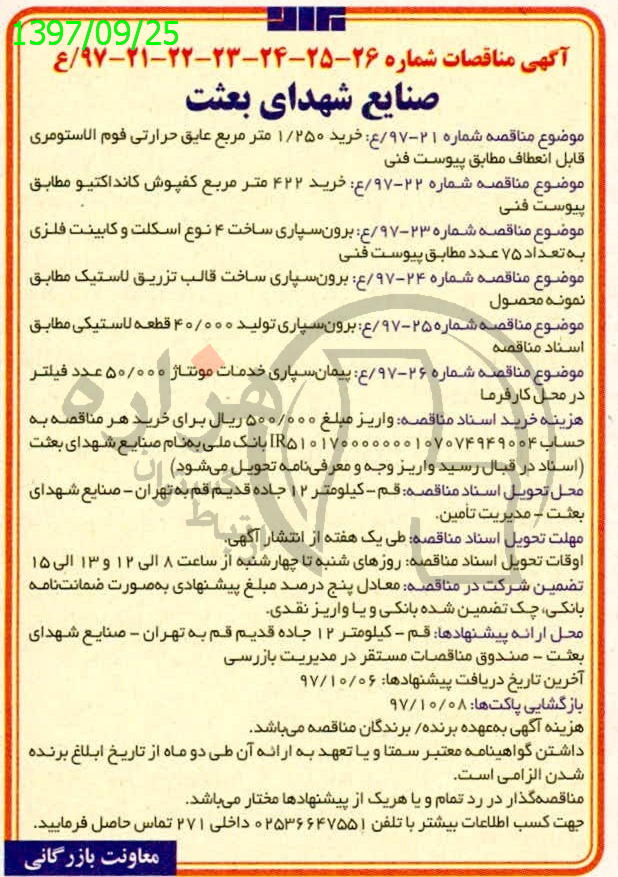 1397/09/25
آگهی مناقصات شماره ۲۶-۲۵-۲۴-۲۳-۲۲-۲۱-۹۷/ع
صنایع شهدای بعثت
موضوع مناقصه شماره ۲۱-۹۷/ع: خرید ۱/۲۵۰ متر مربع عایق حرارتی فوم الاستومری
قابل انعطاف مطابق پیوست فنی
موضوع مناقصه شماره ۲۲-۹۷/ع: خرید ۴۲۲ متر مربع کفپوش کانداکتیو مطابق
پیوست فنی
موضوع مناقصه شماره ۲۳-۹۷/ع: برون‌سپاری ساخت ۴ نوع اسکلت و کابینت فلزی
به تعداد ۷۵ عدد مطابق پیوست فنی
موضوع مناقصه شماره ۲۴-۹۷/ع: برون‌سپاری ساخت قالب تزریق لاستیک مطابق
نمونه محصول
موضوع مناقصه شماره ۲۵-۹۷/ع: برون‌سپاری تولید ۴۰/۰۰۰ قطعه لاستیکی مطابق
اسناد مناقصه
موضوع مناقصه شماره ۲۶-۹۷/ع: پیمان‌سپاری خدمات مونتاژ ۵۰/۰۰۰ عدد فیلتر
در محل کارفرما
هزینه خرید اسناد مناقصه: واریز مبلغ ۵۰۰/۰۰۰ ریال برای خرید هر مناقصه به
حساب IR۵۱۰۱۷۰۰۰۰۰۰۰۱۰۷۰۷۴۹۴۹۰۰۴ بانک ملی به‌نام صنایع شهدای بعثت
(اسناد در قبال رسید واریز وجه و معرفی‌نامه تحویل می‌شود)
محل تحویل اسناد مناقصه: قم - کیلومتر ۱۲ جاده قدیم قم به تهران - صنایع شهدای
بعثت - مدیریت تأمین.
مهلت تحویل اسناد مناقصه: طی یک هفته از انتشار آگهی.
اوقات تحویل اسناد مناقصه: روزهای شنبه تا چهارشنبه از ساعت ۸ الی ۱۲ و ۱۳ الی ۱۵
تضمین شرکت در مناقصه: معادل پنج درصد مبلغ پیشنهادی به‌صورت ضمانت‌نامه
بانکی، چک تضمین شده بانکی و یا واریز نقدی.
محل ارائه پیشنهادها: قم - کیلومتر ۱۲ جاده قدیم قم به تهران - صنایع شهدای
بعثت - صندوق مناقصات مستقر در مدیریت بازرسی
آخرین تاریخ دریافت پیشنهادها: ۹۷/۱۰/۰۶
بازگشایی پاکت‌ها: ۹۷/۱۰/۰۸
هزینه آگهی به‌عهده برنده/ برندگان مناقصه می‌باشد.
داشتن گواهینامه معتبر سمتا و یا تعهد به ارائه آن طی دو ماه از تاریخ ابلاغ برنده
شدن الزامی است.
مناقصه‌گذار در رد تمام و یا هریک از پیشنهادها مختار می‌باشد.
جهت کسب اطلاعات بیشتر با تلفن ۰۲۵۳۶۶۴۷۵۵۱ داخلی ۲۷۱ تماس حاصل فرمایید.
معاونت بازرگانی
هزاره